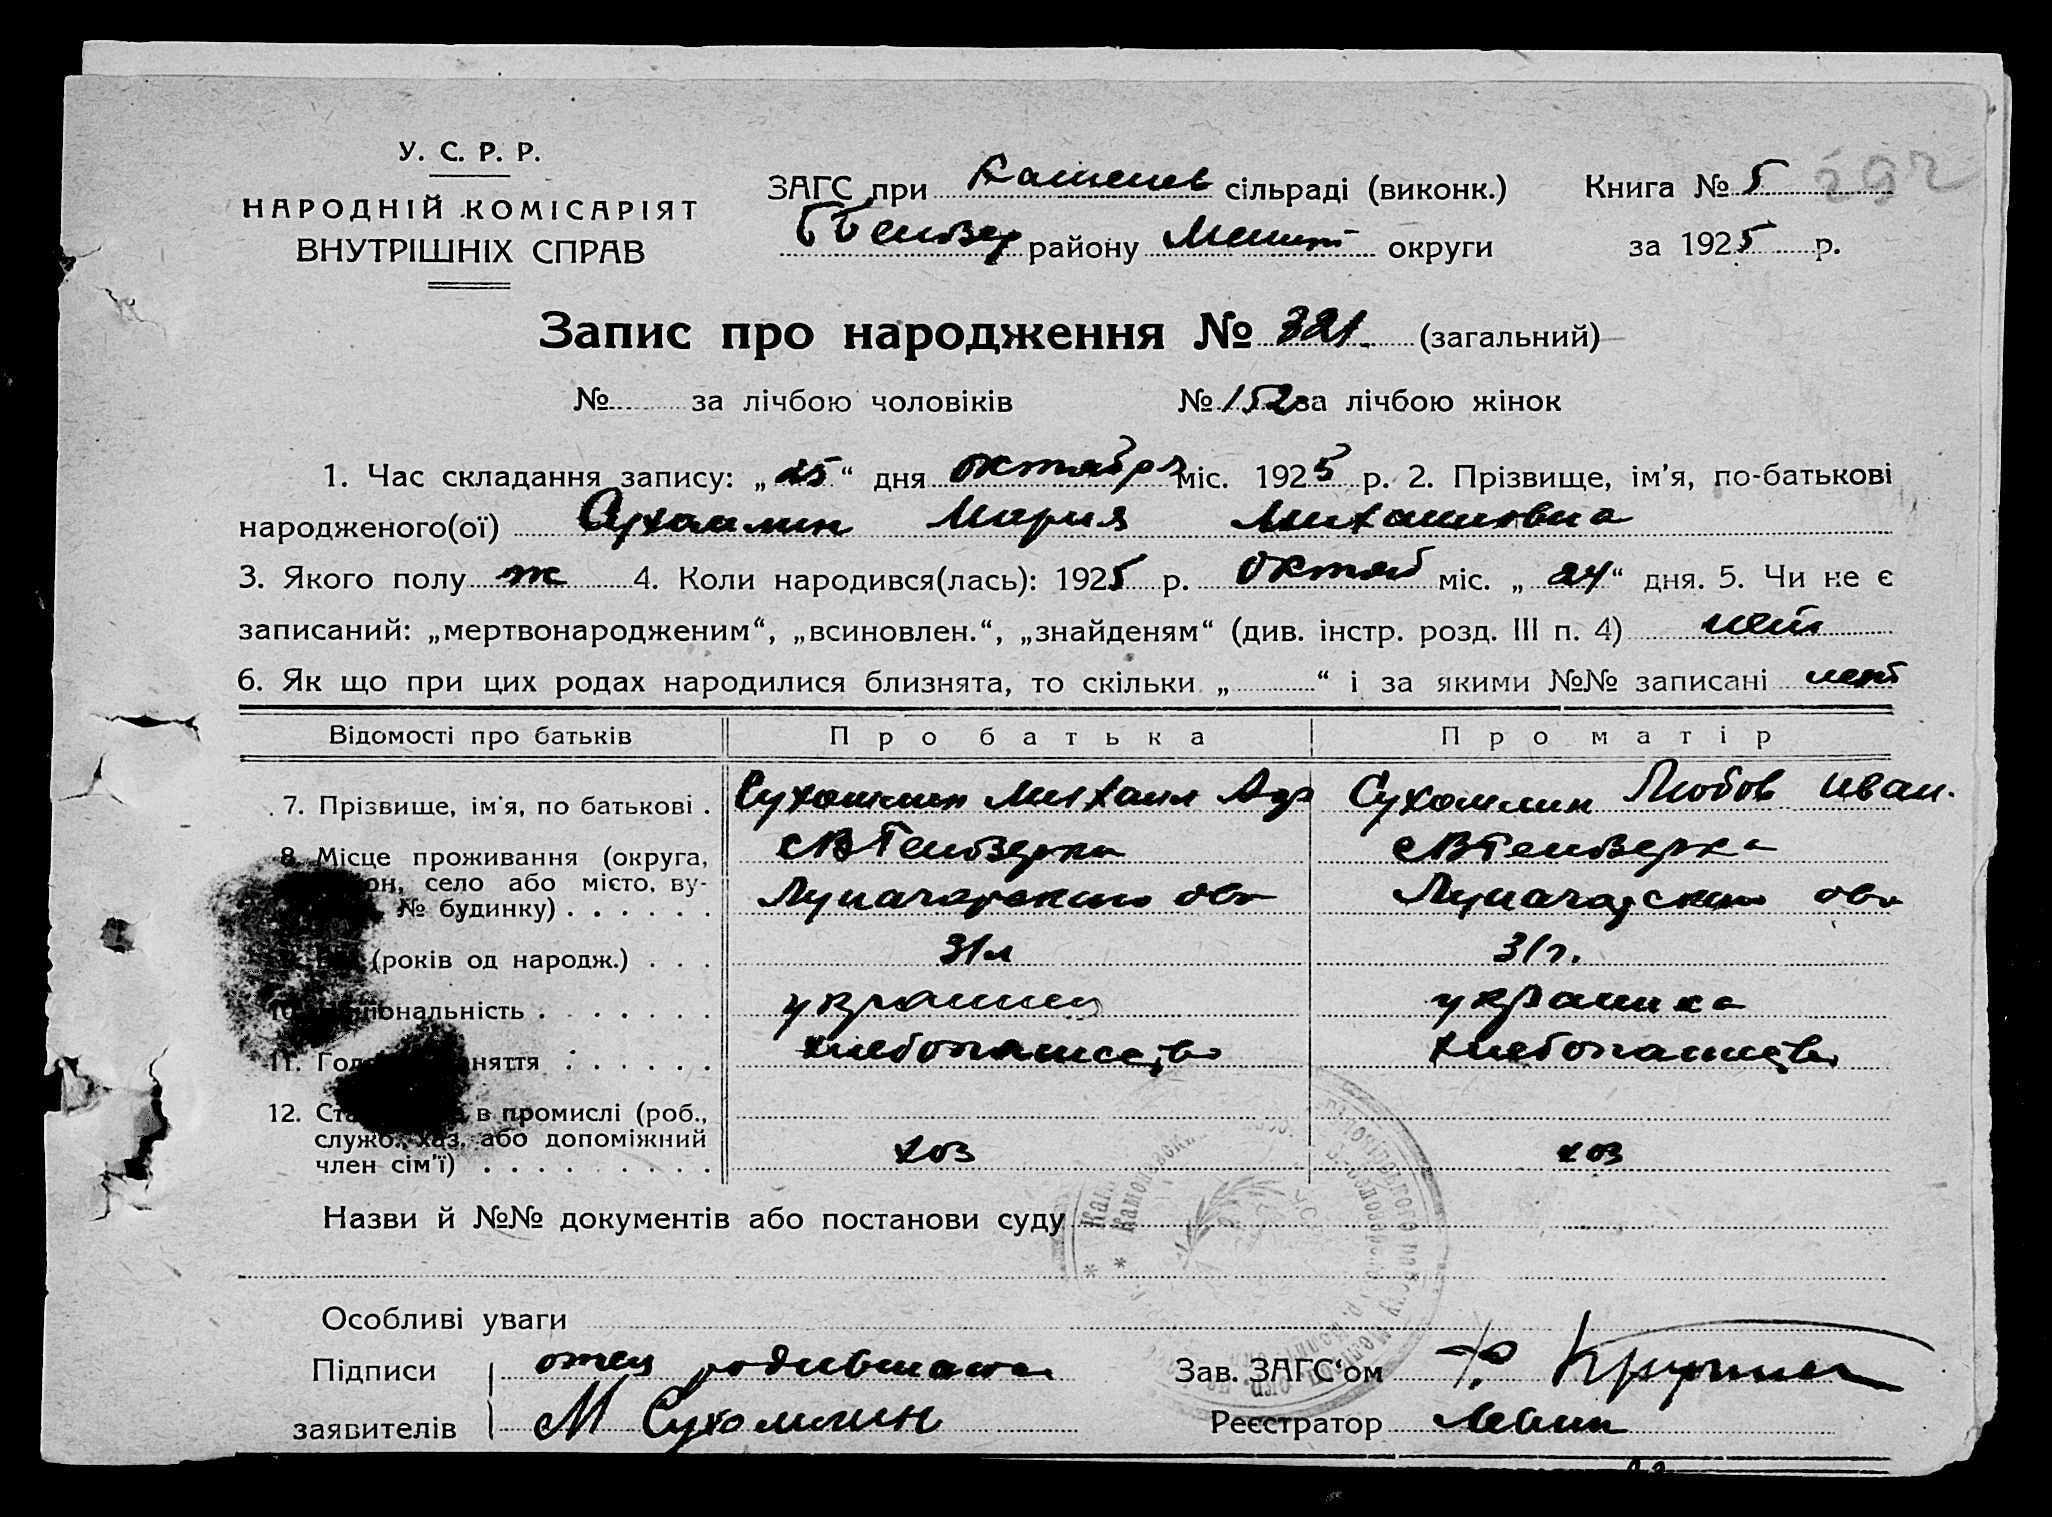 У. С. Р. Р.
НАРОДНІЙ КОМІСАРІЯТ
ВНУТРІШНІХ СПРАВ
ЗАГС при Каменев сільраді (виконк.)
району Мелит округи
Книга № 5
за 1925 р.
Запис про народження № 321 (загальний)
№ за лічбою чоловіків № 152 за лічбою жінок
1. Час складання запису: „25“ дня октября міс. 1925 р. 2. Прізвище, ім'я, по-батькові
народженого(ої) Сухомлин Мария Михаиловна
3. Якого полу ж 4. Коли народився(лась): 1925 р. октяб міс. „24“ дня. 5. Чи не є
записаний: „мертвонародженим“, „всиновлен.“, „знайденям“ (див. інстр. розд. III п. 4) нет
6. Як що при цих родах народилися близнята, то скільки „ “ і за якими №№ записані нет
Відомості про батьків Про батька Про матір
7. Прізвище, ім'я, по батькові . Сухомлин Михаил Сухомлин Любов Иван.
8. Місце проживання (округа,
село або місто, ву-
№ будинку)
(років од народж.) 31л 31г.
10. украинец украинка
11. хлебопашество хлебопашество
12. в промислі (роб.,
служб., хаз. або допоміжний
член сім'ї) хоз хоз
Назви й №№ документів або постанови суду
Особливі уваги
Підписи отец родившагося Зав. ЗАГС'ом
заявителів М Сухомлин Реєстратор